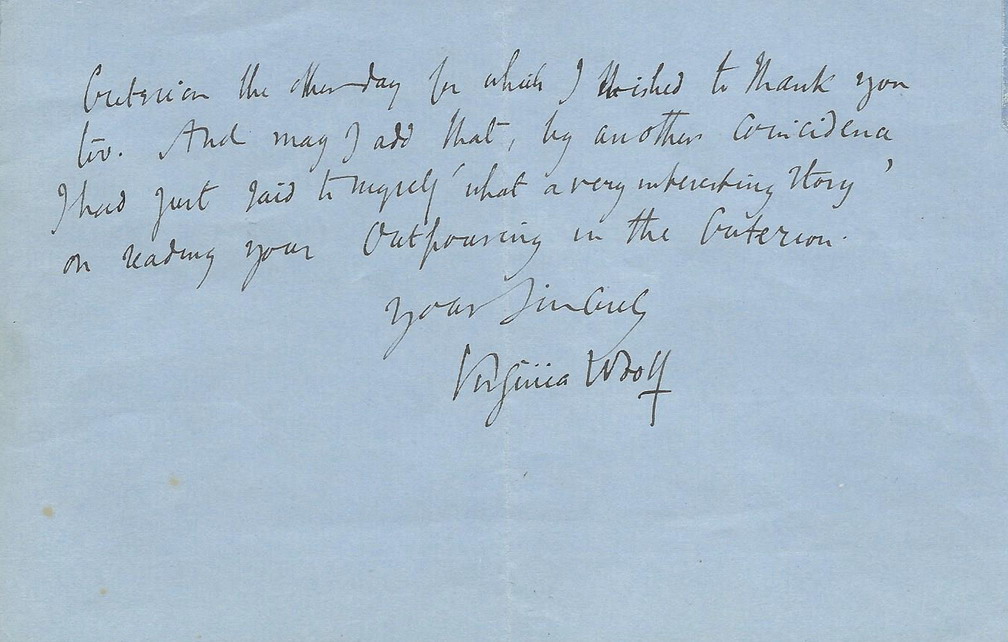 Criterion the other day for which I wished to thank you
too. And may I add that, by another coincidence
I had just said to myself 'what a very interesting story'
on reading your Outpouring in the Criterion.
Yours sincerely
Virginia Woolf